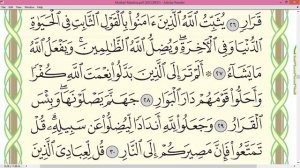 قَرَارٍ ٢٦ يُثَبِّتُ ٱللَّهُ ٱلَّذِينَ ءَامَنُواْ بِٱلْقَوْلِ ٱلثَّابِتِ فِى ٱلْحَيَوٰةِ
ٱلدُّنْيَا وَفِى ٱلْءَاخِرَةِ ۖ وَيُضِلُّ ٱللَّهُ ٱلظَّٰلِمِينَ ۚ وَيَفْعَلُ ٱللَّهُ
مَا يَشَآءُ ٢٧ ۞ أَلَمْ تَرَ إِلَى ٱلَّذِينَ بَدَّلُواْ نِعْمَتَ ٱللَّهِ كُفْرًا
وَأَحَلُّواْ قَوْمَهُمْ دَارَ ٱلْبَوَارِ ٢٨ جَهَنَّمَ يَصْلَوْنَهَا ۖ وَبِئْسَ
ٱلْقَرَارُ ٢٩ وَجَعَلُواْ لِلَّهِ أَندَادًا لِّيُضِلُّواْ عَن سَبِيلِهِۦ ۗ قُلْ
تَمَتَّعُواْ فَإِنَّ مَصِيرَكُمْ إِلَى ٱلنَّارِ ٣٠ قُل لِّعِبَادِىَ ٱلَّذِينَ